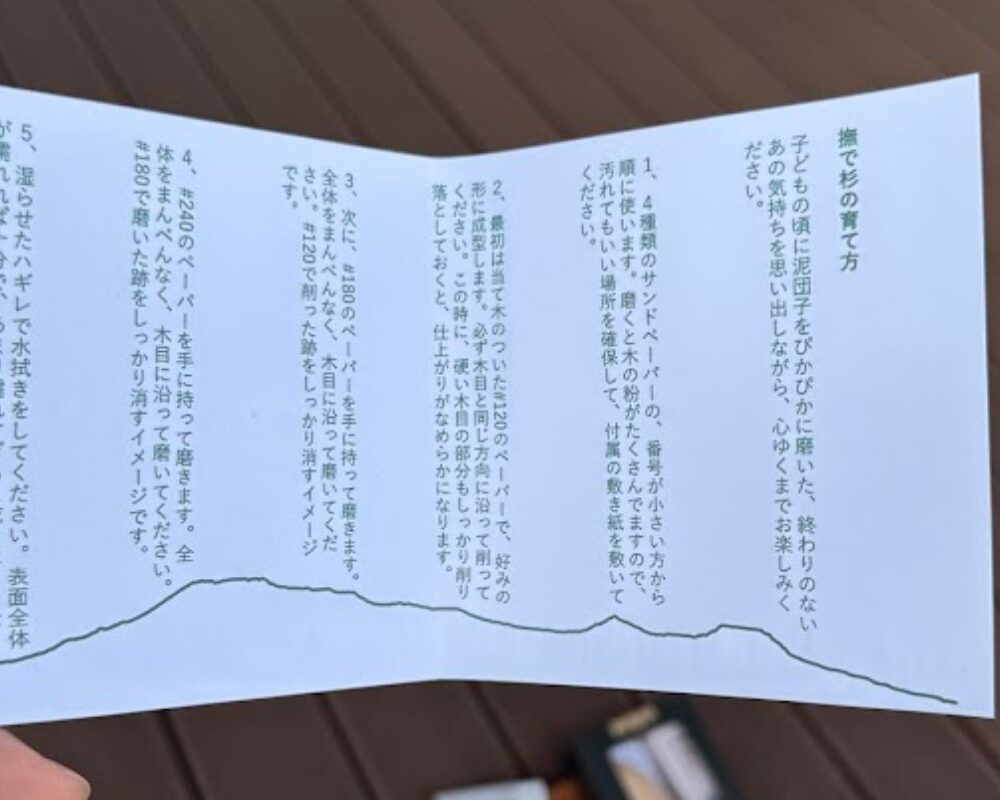 撫で杉の育て方
子どもの頃に泥団子をぴかぴかに磨いた、終わりのない
あの気持ちを思い出しながら、心ゆくまでお楽しみく
ださい。
1、4種類のサンドペーパーの、番号が小さい方から
順に使います。磨くと木の粉がたくさんでますので、
汚れてもいい場所を確保して、付属の敷き紙を敷いて
ください。
2、最初は当て木のついた#120のペーパーで、好みの
形に成型します。必ず木目と同じ方向に沿って削って
ください。この時に、硬い木目の部分もしっかり削り
落としておくと、仕上がりがなめらかになります。
3、次に、#180のペーパーを手に持って磨きます。
全体をまんべんなく、木目に沿って磨いてくだ
さい。#120で削った跡をしっかり消すイメージ
です。
4、#240のペーパーを手に持って磨きます。全
体をまんべんなく、木目に沿って磨いてください。
#180で磨いた跡をしっかり消すイメージです。
5、湿らせたハギレで水拭きをしてください。表面全体
が濡れれば十分で、あまり濡れて